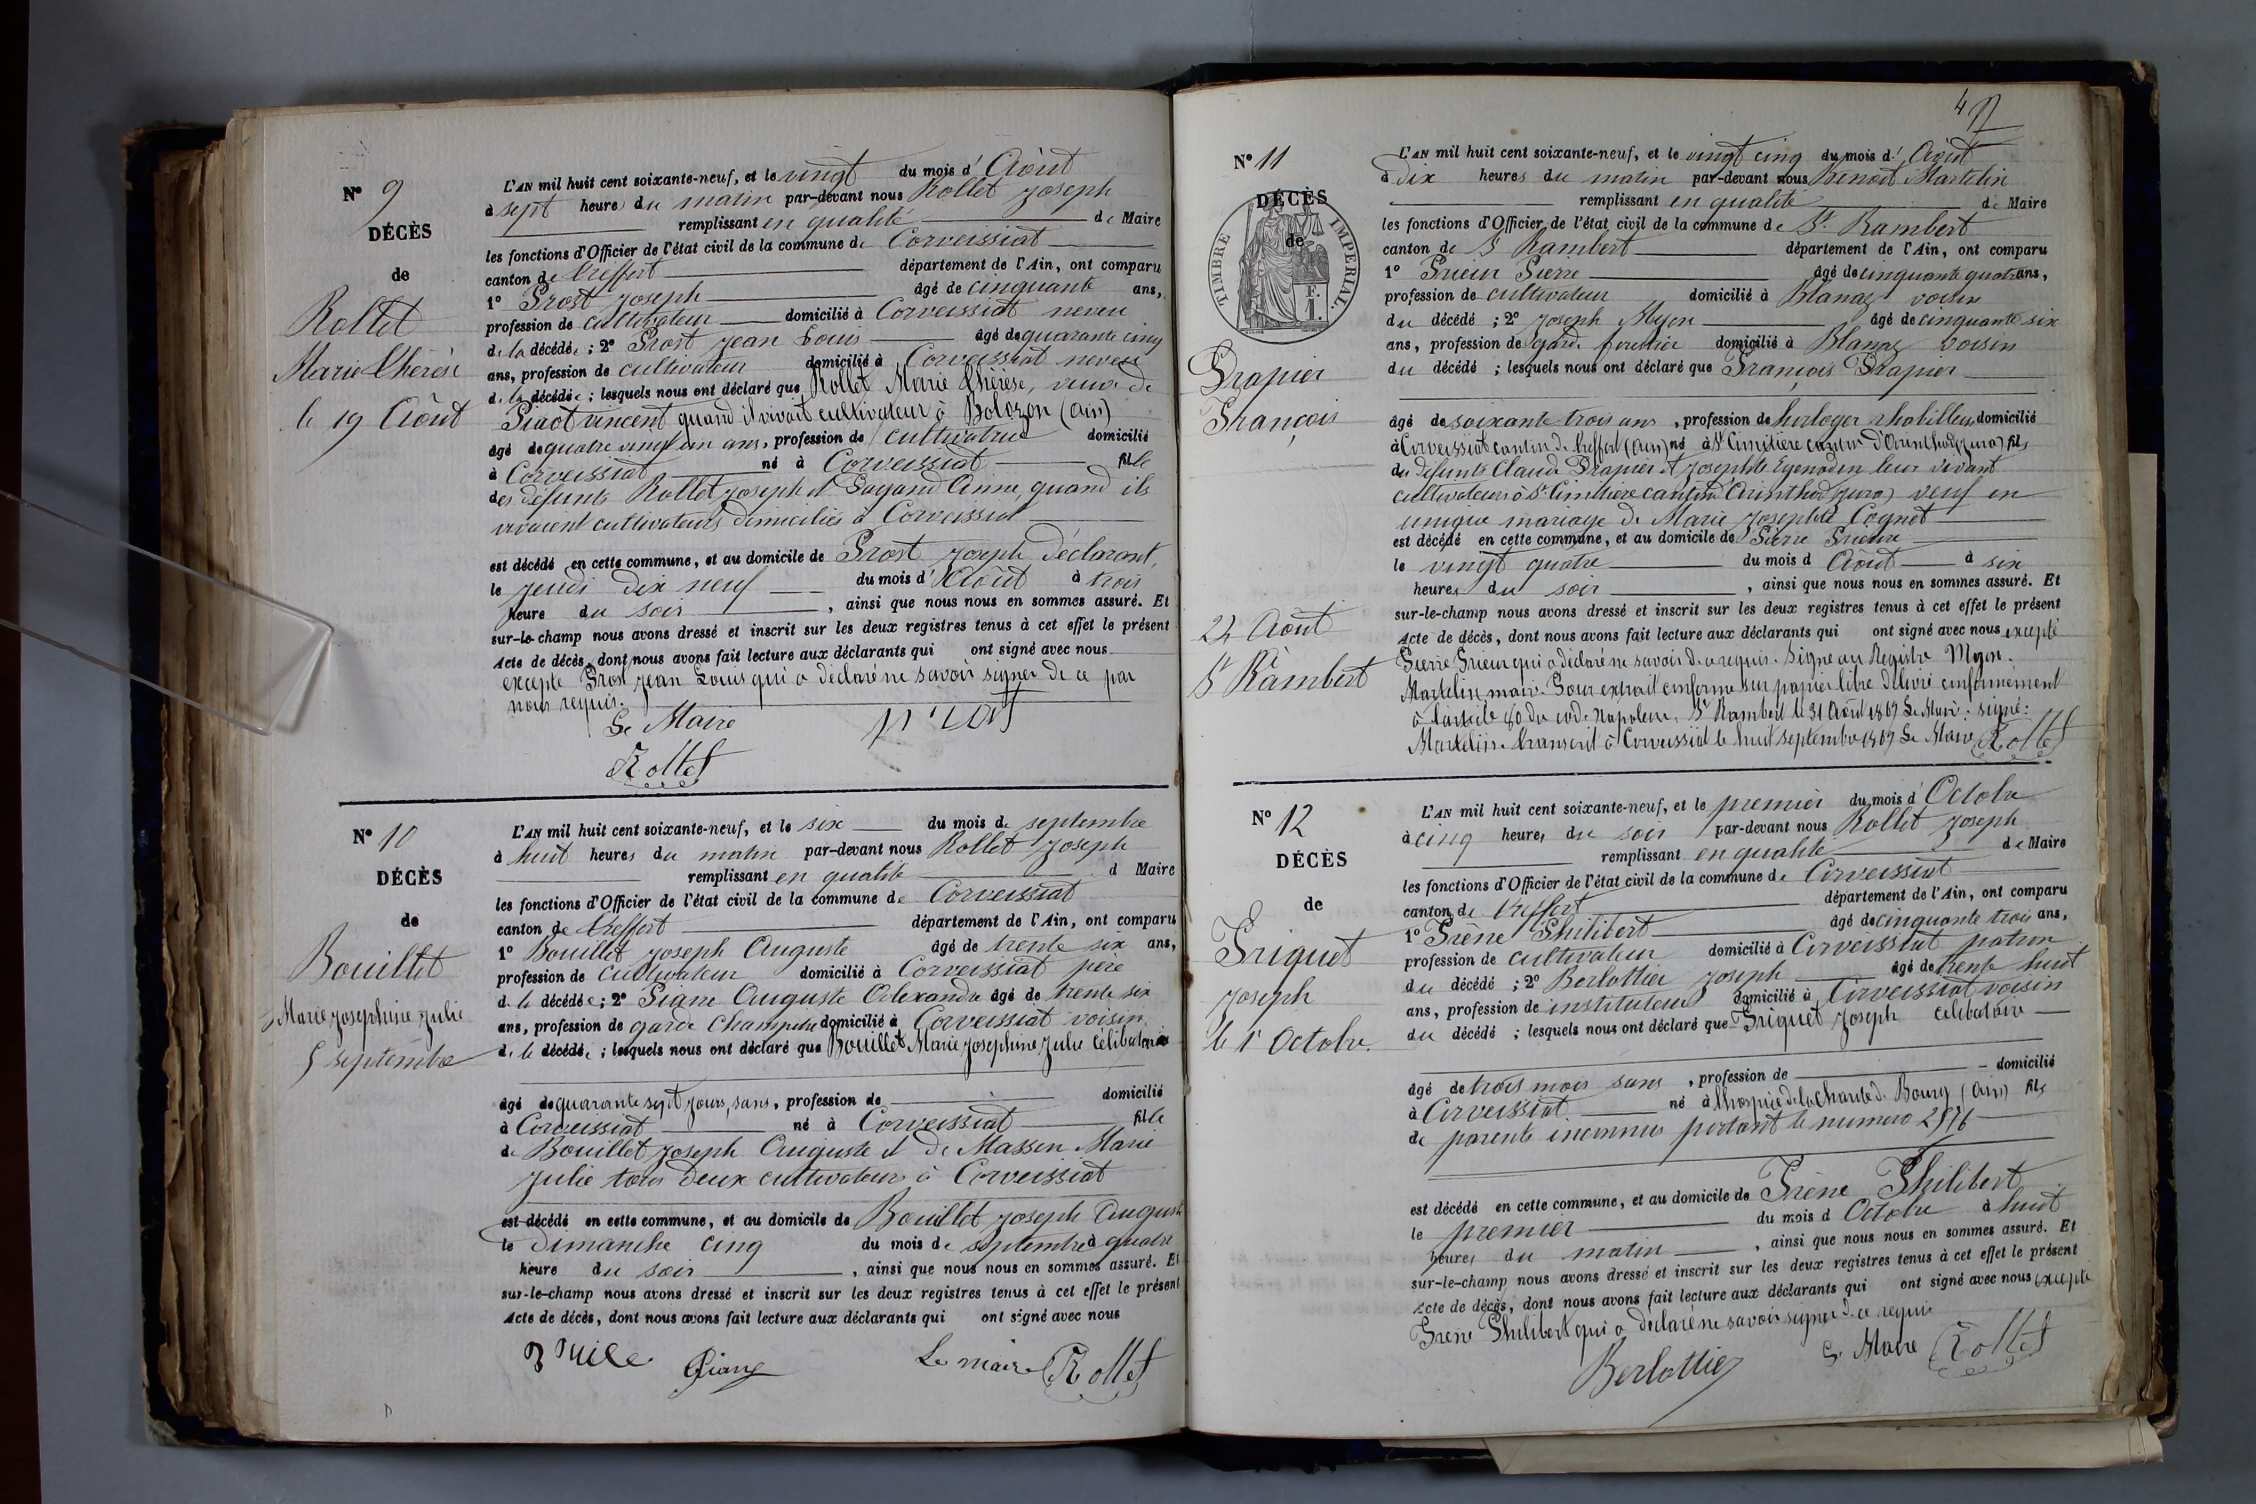 N° 9
DÉCÈS
de
Rollet
Marie Thérèse
le 19 Août
L'AN mil huit cent soixante-neuf, et le vingt du mois d'Août
à sept heures du matin par-devant nous Rollet Joseph
remplissant en qualité de Maire
les fonctions d'Officier de l'état civil de la commune de Corveissiat
canton de Treffort département de l'Ain, ont comparu
1° Prost Joseph âgé de cinquante ans,
profession de cultivateur domicilié à Corveissiat neveu
de la décédée ; 2° Prost Jean Louis âgé de quarante cinq
ans, profession de cultivateur domicilié à Corveissiat neveu
de la décédée ; lesquels nous ont déclaré que Rollet Marie Thérèse, veuve de
vincent quand il vivait cultivateur à Bolozon (Ain)
âgé de quatre vingt un ans, profession de cultivatrice domicilié
à Corveissiat né à Corveissiat fille
des défunts Rollet Joseph et Anne, quand ils
vivaient cultivateurs domiciliés à Corveissiat
est décédé en cette commune, et au domicile de Prost Joseph déclarant,
le jeudi dix neuf du mois d'Août à trois
heure du soir, ainsi que nous nous en sommes assuré. Et
sur-le-champ nous avons dressé et inscrit sur les deux registres tenus à cet effet le présent
Acte de décès, dont nous avons fait lecture aux déclarants qui ont signé avec nous
excepté Prost Jean Louis qui a déclaré ne savoir signer de ce par
nous requis.
Le Maire
Rollet
N° 10
DÉCÈS
de
Bouillet
Marie Josephine Julie
5 septembre
L'AN mil huit cent soixante-neuf, et le six du mois de septembre
à huit heures du matin par-devant nous Rollet Joseph
remplissant en qualité d Maire
les fonctions d'Officier de l'état civil de la commune de Corveissiat
canton de Treffort département de l'Ain, ont comparu
1° Bouillet Joseph Auguste âgé de trente six ans,
profession de cultivateur domicilié à Corveissiat père
de la décédée ; 2° Piane Auguste Alexandre âgé de trente six
ans, profession de garde champetre domicilié à Corveissiat voisin
de la décédée ; lesquels nous ont déclaré que Bouillet Marie Josephine Julie célibataire
âgé de quarante sept jours, sans, profession de domicilié
à Corveissiat né à Corveissiat fille
de Bouillet Joseph Auguste et de Massin Marie
Julie tous deux cultivateurs à Corveissiat
est décédé en cette commune, et au domicile de Bouillet Joseph Auguste
le dimanche cinq du mois de septembre à quatre
heure du soir, ainsi que nous nous en sommes assuré. Et
sur-le-champ nous avons dressé et inscrit sur les deux registres tenus à cet effet le présent
Acte de décès, dont nous avons fait lecture aux déclarants qui ont signé avec nous
Le maire Rollet
N° 11
DÉCÈS
de
TIMBRE IMPERIAL.
F.
1.
Drapier
François
24 Août
à
St Rambert
L'AN mil huit cent soixante-neuf, et le vingt cinq du mois d'Août
à dix heures du matin par-devant nous Benoit Martelin
remplissant en qualité de Maire
les fonctions d'Officier de l'état civil de la commune de St. Rambert
canton de St Rambert département de l'Ain, ont comparu
1° Prieur Pierre âgé de cinquante quatre ans,
profession de cultivateur domicilié à Blanaz voisin
du décédé ; 2° Joseph Myon âgé de cinquante six
ans, profession de garde forestier domicilié à Blanaz voisin
du décédé ; lesquels nous ont déclaré que François Drapier
âgé de soixante trois ans, profession de horloger rhabilleur domicilié
à Corveissiat canton de Treffort (Ain) né à St Cimitière canton d'Arinthod (Jura) fils
des défunts Claude Drapier et Josephte leur vivant
cultivateurs à St Cimitière canton d'Arinthod (Jura) veuf en
unique mariage de Marie Josephte Cognet
est décédé en cette commune, et au domicile de Pierre Prieur
le vingt quatre du mois d Août à six
heures du soir, ainsi que nous nous en sommes assuré. Et
sur-le-champ nous avons dressé et inscrit sur les deux registres tenus à cet effet le présent
Acte de décès, dont nous avons fait lecture aux déclarants qui ont signé avec nous excepté
Pierre Prieur qui a déclaré ne savoir de ce requis. Signé au Registre Myon.
Martelin maire. Pour extrait conforme sur papier libre délivré conformément
à l'article 80 du code Napoléon, St Rambert le 31 Août 1869 Le Maire : signé :
Martelin. Transcrit à Corveissiat le huit septembre 1869 Le Maire Rollet
N° 12
DÉCÈS
de
Friquet
Joseph
le 1er Octobre.
L'AN mil huit cent soixante-neuf, et le premier du mois d'Octobre
à cinq heures du soir par-devant nous Rollet Joseph
remplissant en qualité de Maire
les fonctions d'Officier de l'état civil de la commune de Corveissiat
canton de Treffort département de l'Ain, ont comparu
1° Frène Philibert âgé de cinquante trois ans,
profession de cultivateur domicilié à Corveissiat patron
du décédé ; 2° Berlottier Joseph âgé de trente huit
ans, profession de instituteur domicilié à Corveissiat voisin
du décédé ; lesquels nous ont déclaré que Friquet Joseph célibataire
âgé de trois mois sans, profession de domicilié
à Corveissiat né à l'hospice de la charité de Bourg (Ain) fils
de parents inconnus portant le numero 2976
est décédé en cette commune, et au domicile de Frène Philibert
le premier du mois d Octobre à huit
heures du matin, ainsi que nous nous en sommes assuré. Et
sur-le-champ nous avons dressé et inscrit sur les deux registres tenus à cet effet le présent
Acte de décès, dont nous avons fait lecture aux déclarants qui ont signé avec nous excepté
Frène Philibert qui a déclaré ne savoir signer de ce requis
Berlottier Le Maire Rollet